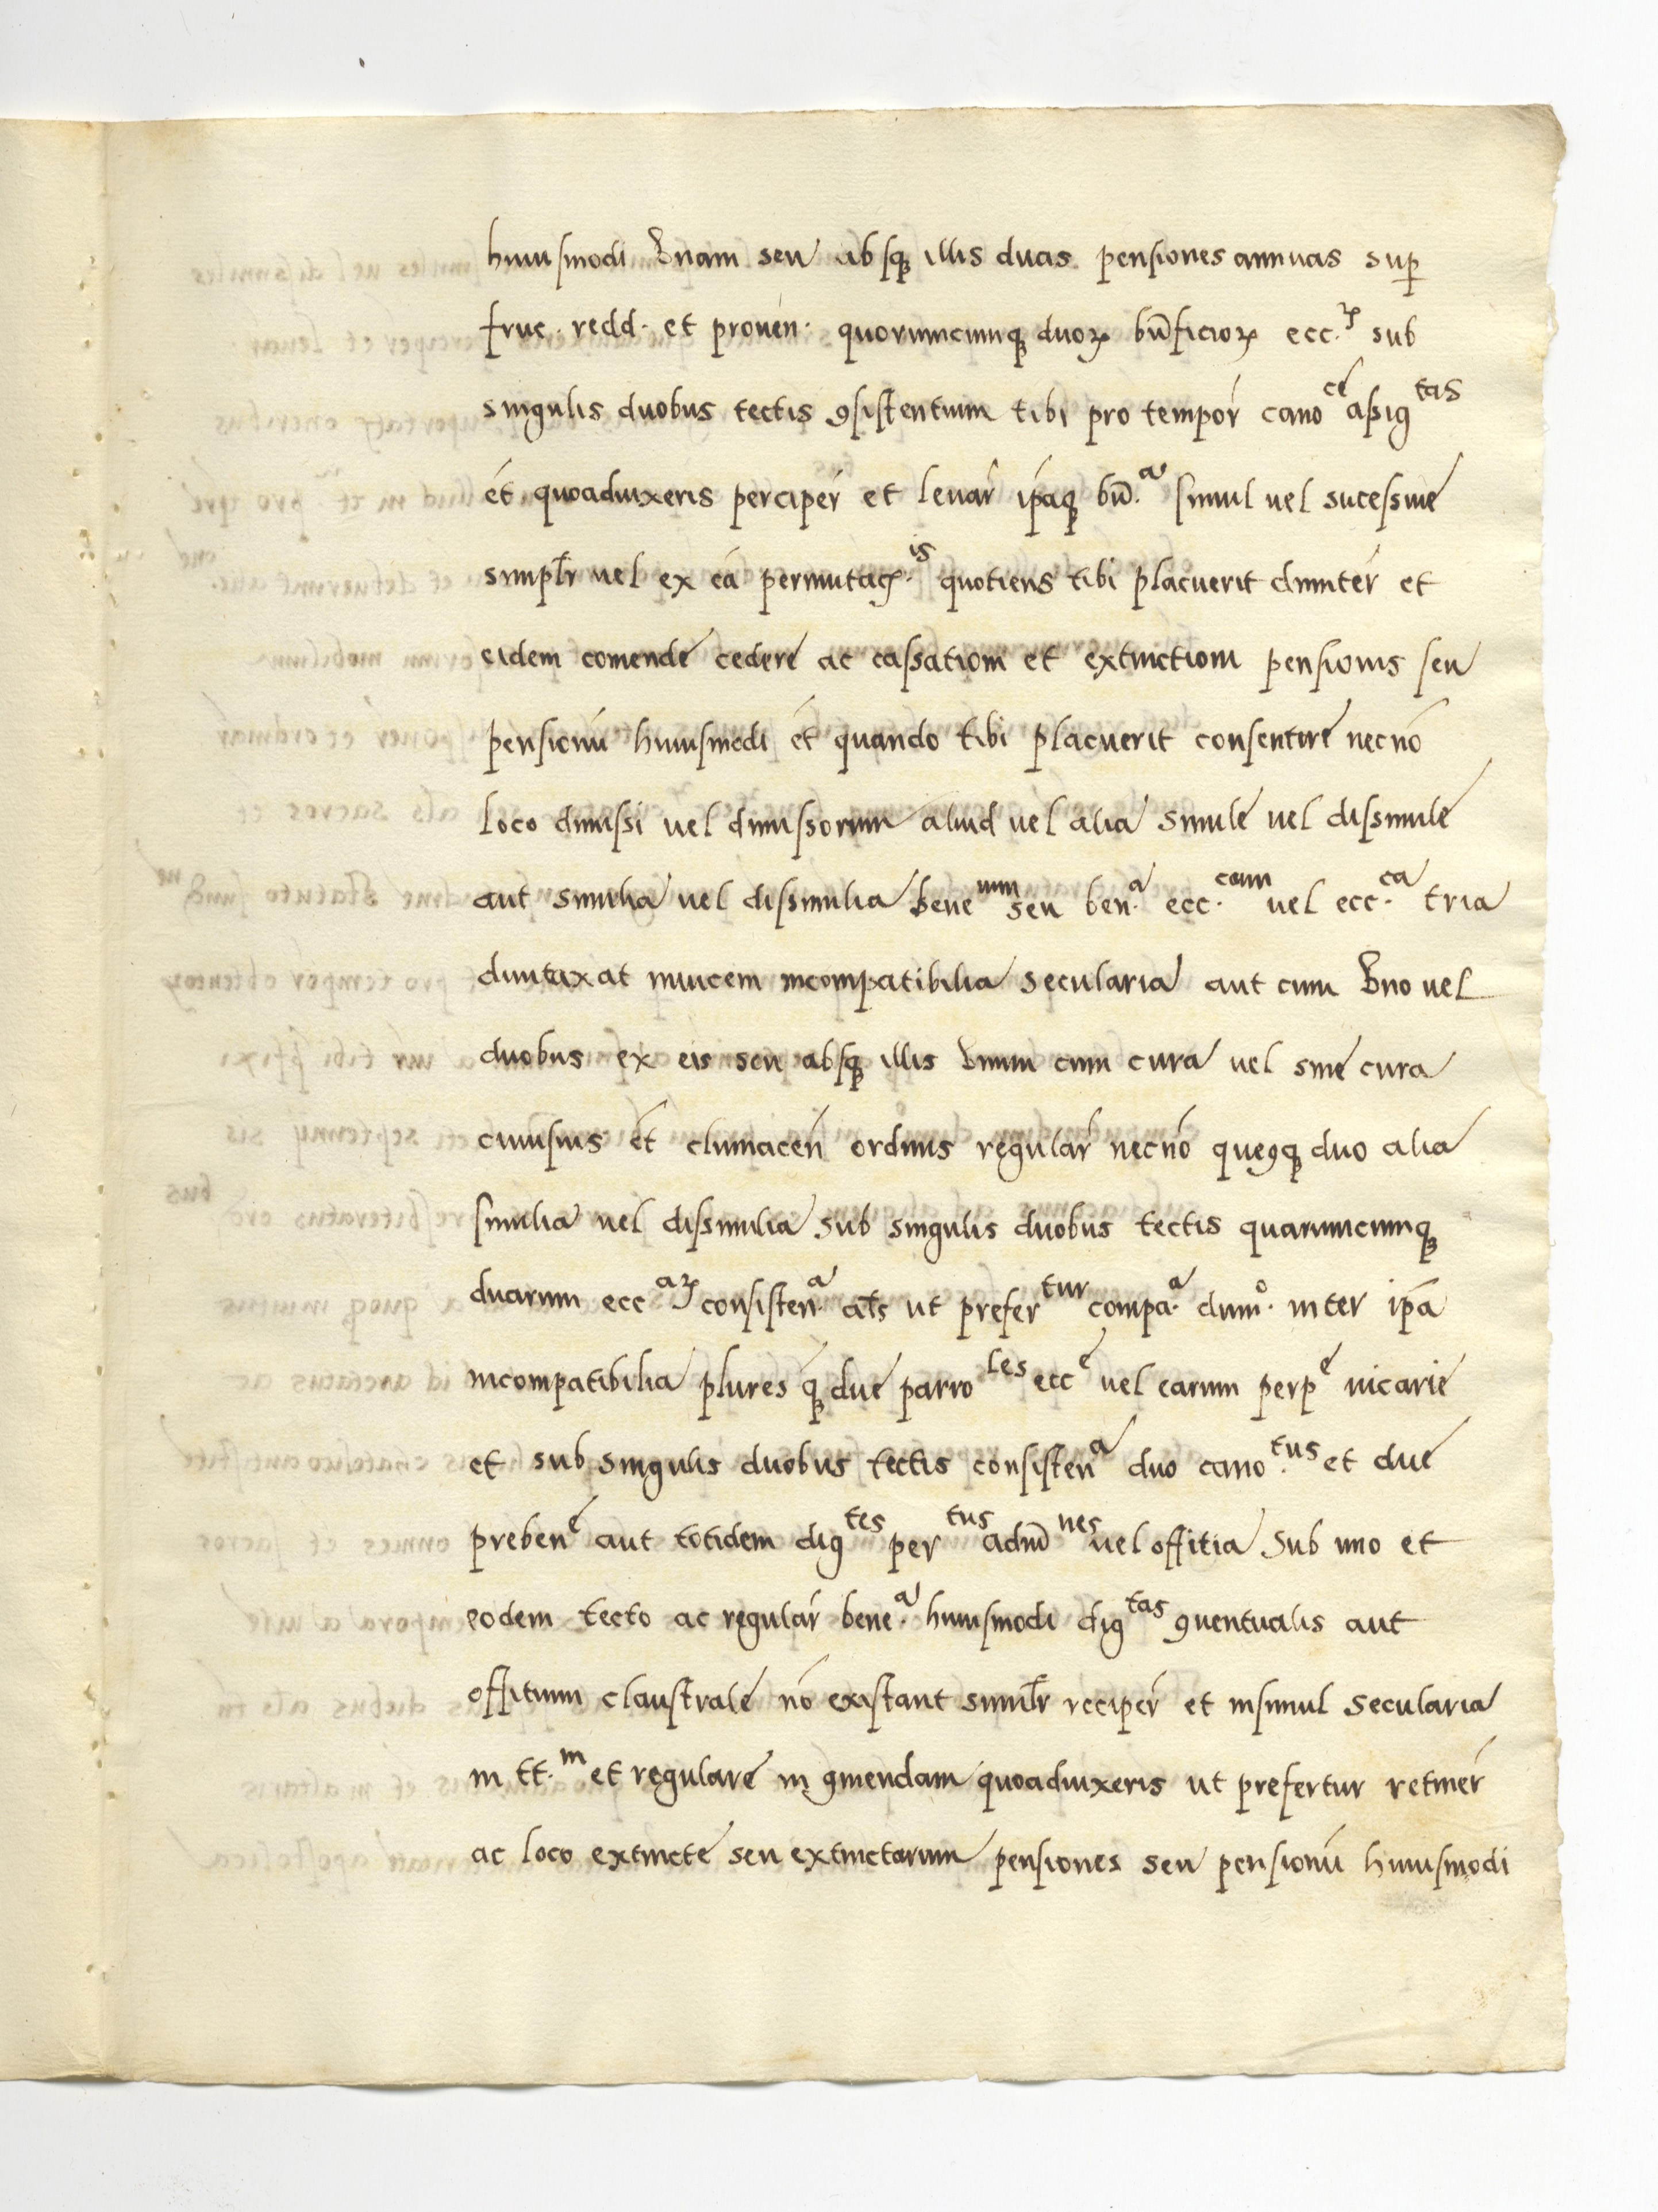 huiusmodi Vnam seu absq̨ illis duas pensiones annuas sup̱
fruc · redd · et prouén · quorumcumq̨ duoꝝ bn̄ficioꝝ ecc.ꝝ sub
singulis duobus tectis ꝯsistentium tibi pro tempoŕ canoᶜᵉ assigᵗᵃˢ
ét quoaduixeris percipeŕ et leuaŕ ip̄aq̨ bn̄.ᵃ simul uel sucessiue
simplr̄ uel ex cā permutac̄.ⁱˢ quotiens tibi placuerit dimiteŕ et
eidem comende cedere ac cassationi et extinctioni pensionis seu
pensionū huiusmodi ét quando tibi placuerit consentire necnō
loco dimissi uel dimissorum aliud uel alia simile uel dissimile
aut similia uel dissimilia beneᵘᵐ seu ben.ᵃ ecc.ᶜᵘᵐ uel ecc.ᶜᵃ tria
duntaxat inuicem incompatibilia secularia aut cum Vno uel
duobus ex eis seu absq̨ illis Vnum cum cura uel sine cura
cuiusuis ét cluniaceń ordinis regulaŕ necnō queꝯq̨ duo alia
similia uel dissimilia sub singulis duobus tectis quarumcumq̨
duarum eccᵃꝝ consisten.ᵃ al̄s ut preferᵗᵘʳ compa.ᵃ dum°. inter ip̄a
incompatibilia plures q̨̄ due parroˡᵉˢ eccᵉ uel earum perpᵉ uicarie
et sub singulis duobus tectis consistenᵃ duo cano.ᵗᵘˢ et due
prebenᵉ aut totidem digᵗᵉˢ perᵗᵘˢ adm̄ⁿᵉˢ uel offitia sub uno et
eodem tecto ac regulaŕ bene.ᵃ huiusmodi digᵗᵃˢ ꝯuentualis aut
offitium claustrale nō existant similr̄ recipeŕ et insimul secularia
in tt.ᵐ et regulare in ꝯmendam quoaduixeris ut prefertur retineŕ
ac loco extincte seu extinctarum pensiones seu pensionū huiusmodi